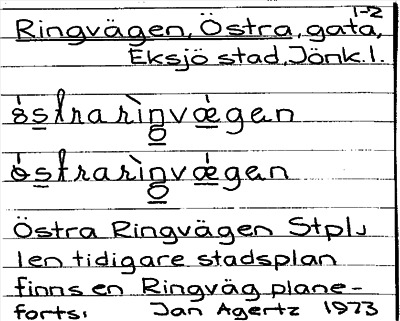 1-2
Ringvägen, Östra, gata,
Eksjö stad, Jönk. l.
östrariŋvægen
östrariŋvægen
Östra Ringvägen Stpl.
I en tidigare stadsplan
finns en Ringväg plane-
forts. Jan Agertz 1973